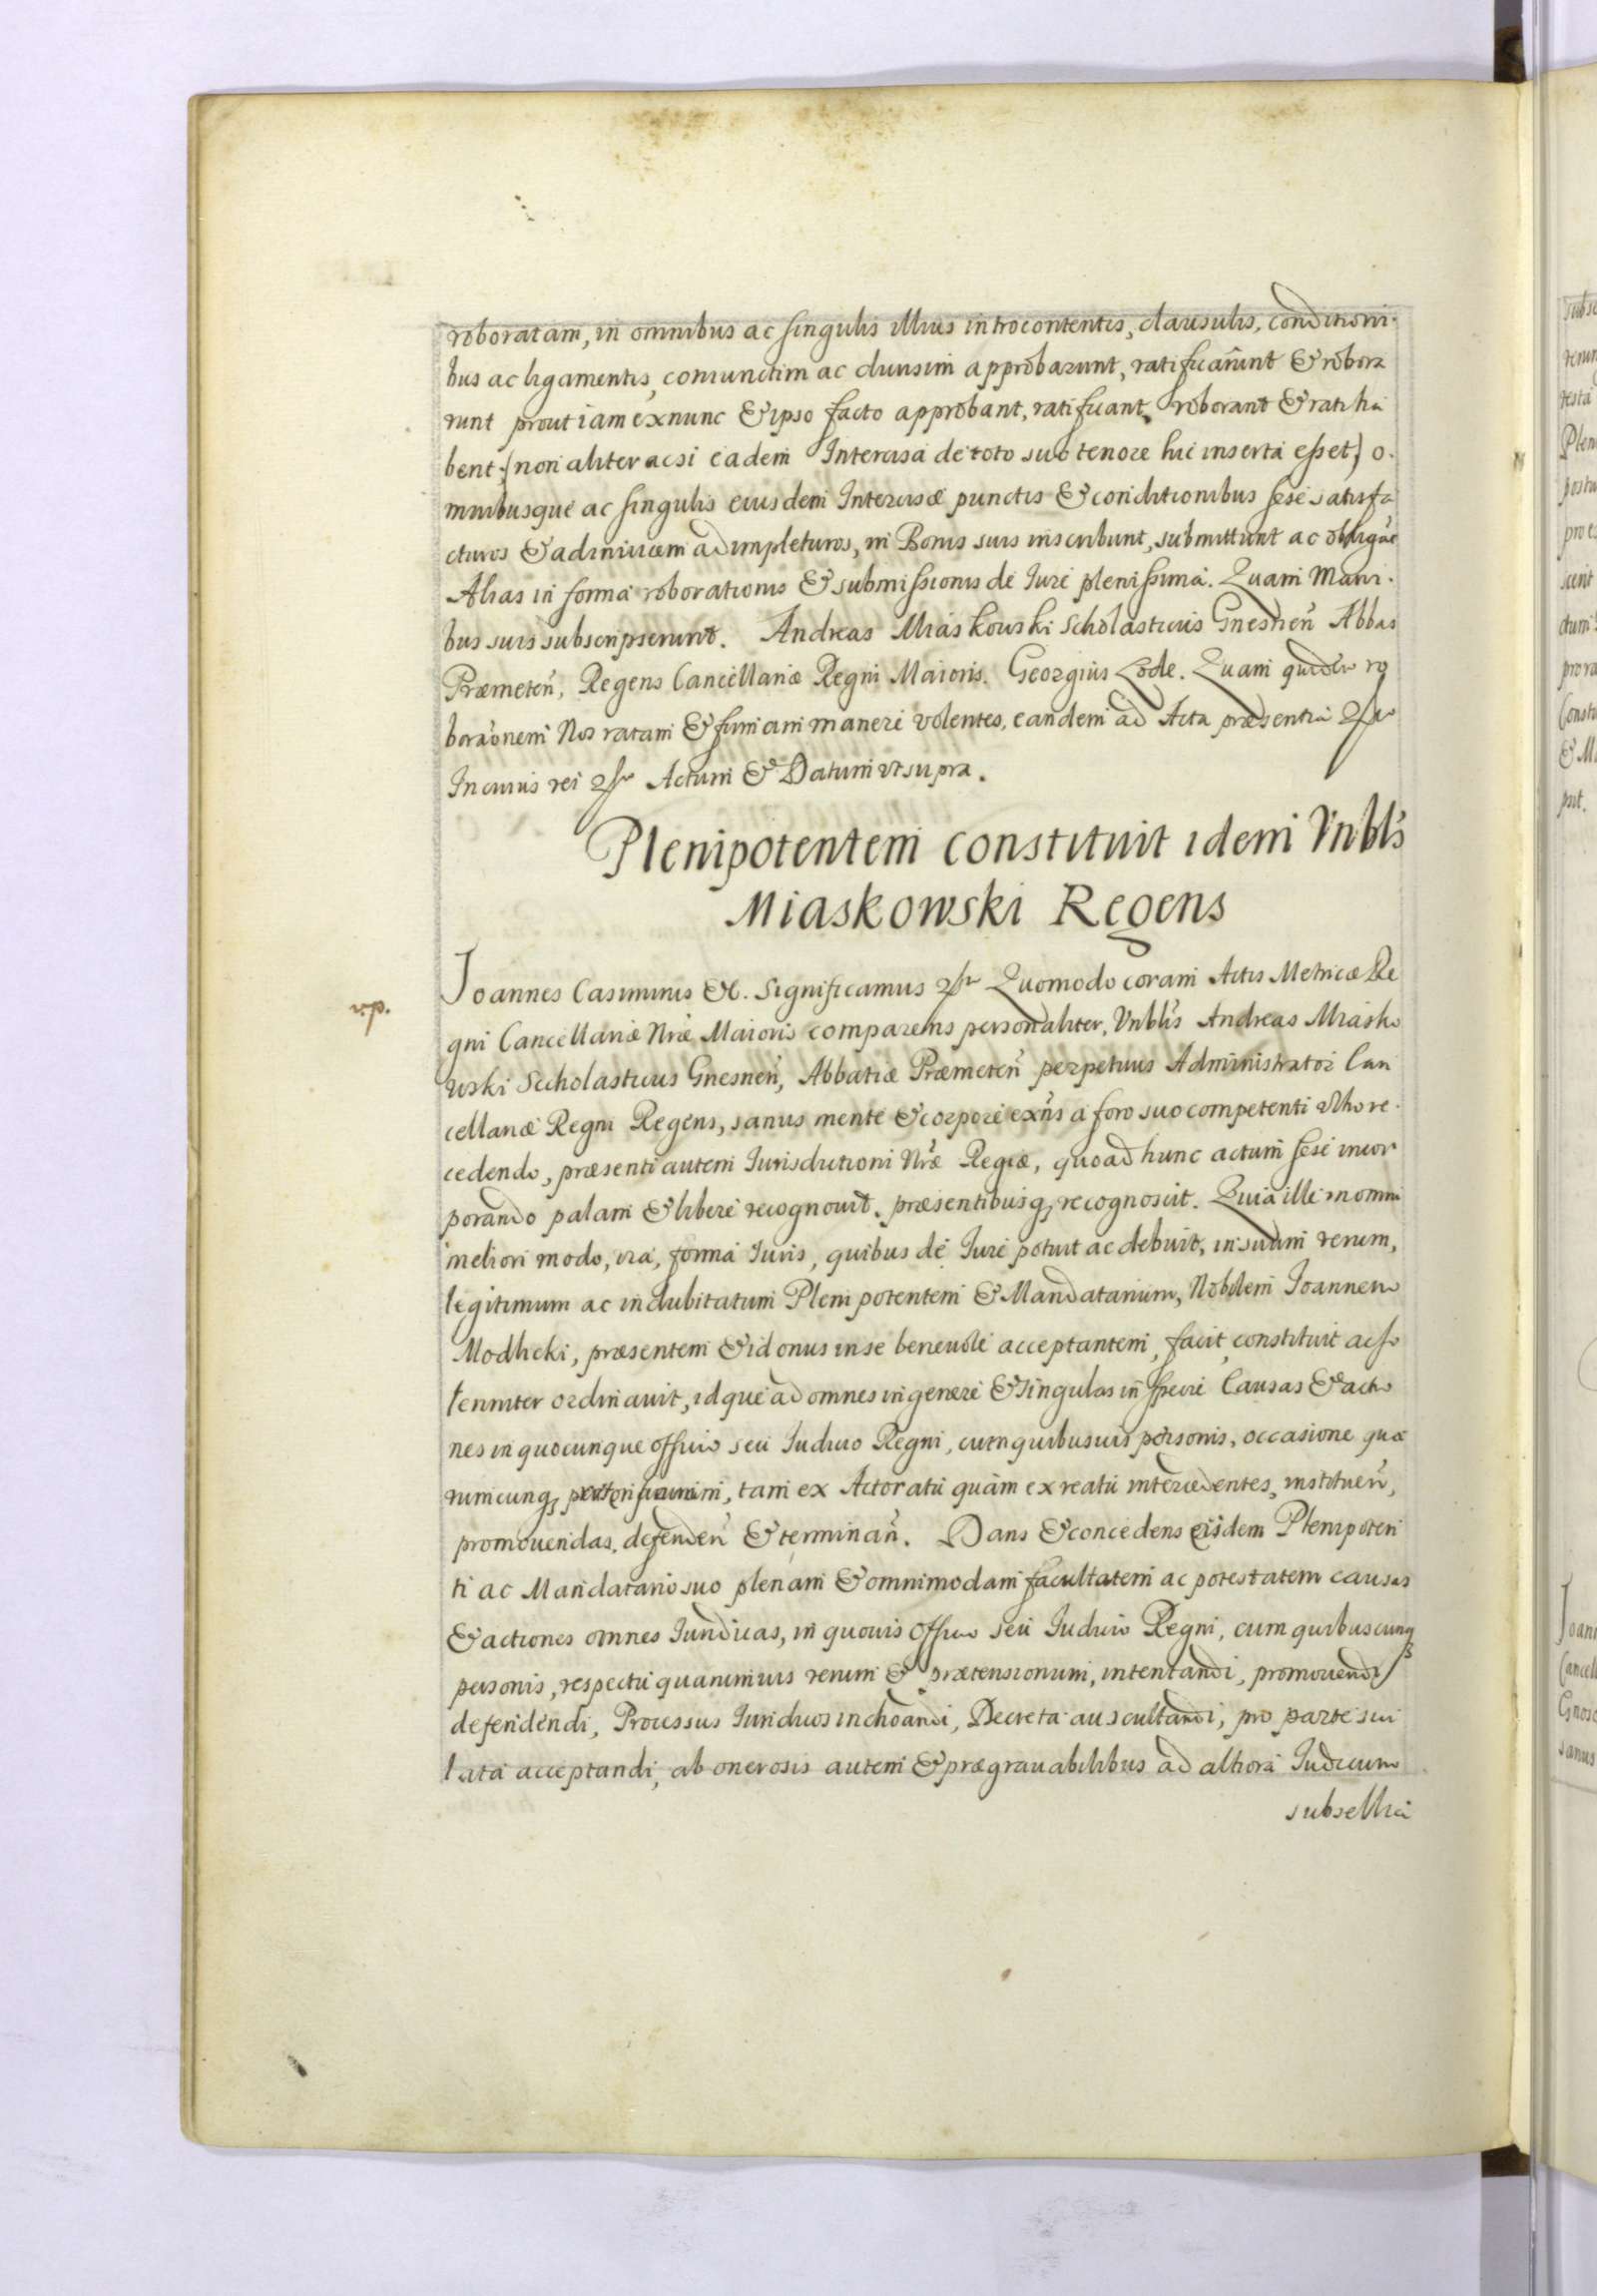 roboratam, in omnibus ac singulis illius introcontentis, clausulis, conditioni-
bus ac ligamentis, coniunctim ac diuisim approbarunt, ratificarunt & robora
runt prout iam exnunc & ipso facto approbant, ratificant, roborant & ratiha
bent (non aliter acsi eadem Intercisa de toto suo tenore hic inserta esset) o-
mnibusque ac singulis eiusdem Intercisæ punctis & conditionibus sese satisfa
cturos & adinuicem adimpleturos, in Bonis suis inscribunt, submittunt ac obligāt
Alias in forma roborationis & submissionis de Iure plenissima. Quam Mani-
bus suis subscripserunt. Andreas Miaskowski Scholasticus Gnesnen̄ Abbas
Præmeten̄, Regens Cancellariæ Regni Maioris. Georgius Lode. Quam quidem ro
borāonem Nos ratam & firmam manere volentes, eandem ad Acta præsentia
In cuius rei Actum & Datum vt supra.
Plenipotentem constituit idem Vnbl's
Miaskowski Regens
Joannes Casimirus &c. Significamus Quomodo coram Actis Metricæ Re
v.p.
gni Cancellariæ Nræ Maioris comparens personaliter, Vnbl's Andreas Miasko
wski Scholasticus Gnesnen̄, Abbatiæ Præmeten̄ perpetuus Administrator Can
cellariæ Regni Regens, sanus mente & corpore exn̄s a foro suo competenti vltro re-
cedendo, præsenti autem Iurisdictioni Nræ Regiæ, quoad hunc actum sese incor
porando palam & libere recognouit, præsentibusq; recognoscit. Quia ille in omni
meliori modo, via, forma Iuris, quibus de Iure potuit ac debuit, in suum verum,
legitimum ac indubitatum Plenipotentem & Mandatarium, Nobilem Joannem
Modlicki, præsentem & id onus in se beneuole acceptantem, facit, constituit ac so
lenniter ordinauit, idque ad omnes in genere & singulas in specie Causas & actio
nes in quocunque officio seu Iudicio Regni, cum quibusuis personis, occasione qua
rumcunq; tam ex Actoratu quàm ex reatu intercedentes, instituen̄,
promouendas, defenden̄ & terminan̄. Dans & concedens eidem Plenipoten
ti ac Mandatario suo plenam & omnimodam facultatem ac potestatem causas
& actiones omnes Iuridicas, in quouis Officio seu Iudicio Regni, cum quibuscunq;
personis, respectu quarumuis rerum & prætensionum, intentandi, promouendi,
defendendi, Processus Iuridicos inchoandi, Decreta auscultandi, pro parte sui
lata acceptandi, ab onerosis autem & prægrauabilibus ad altiora Iudicum
subsellia